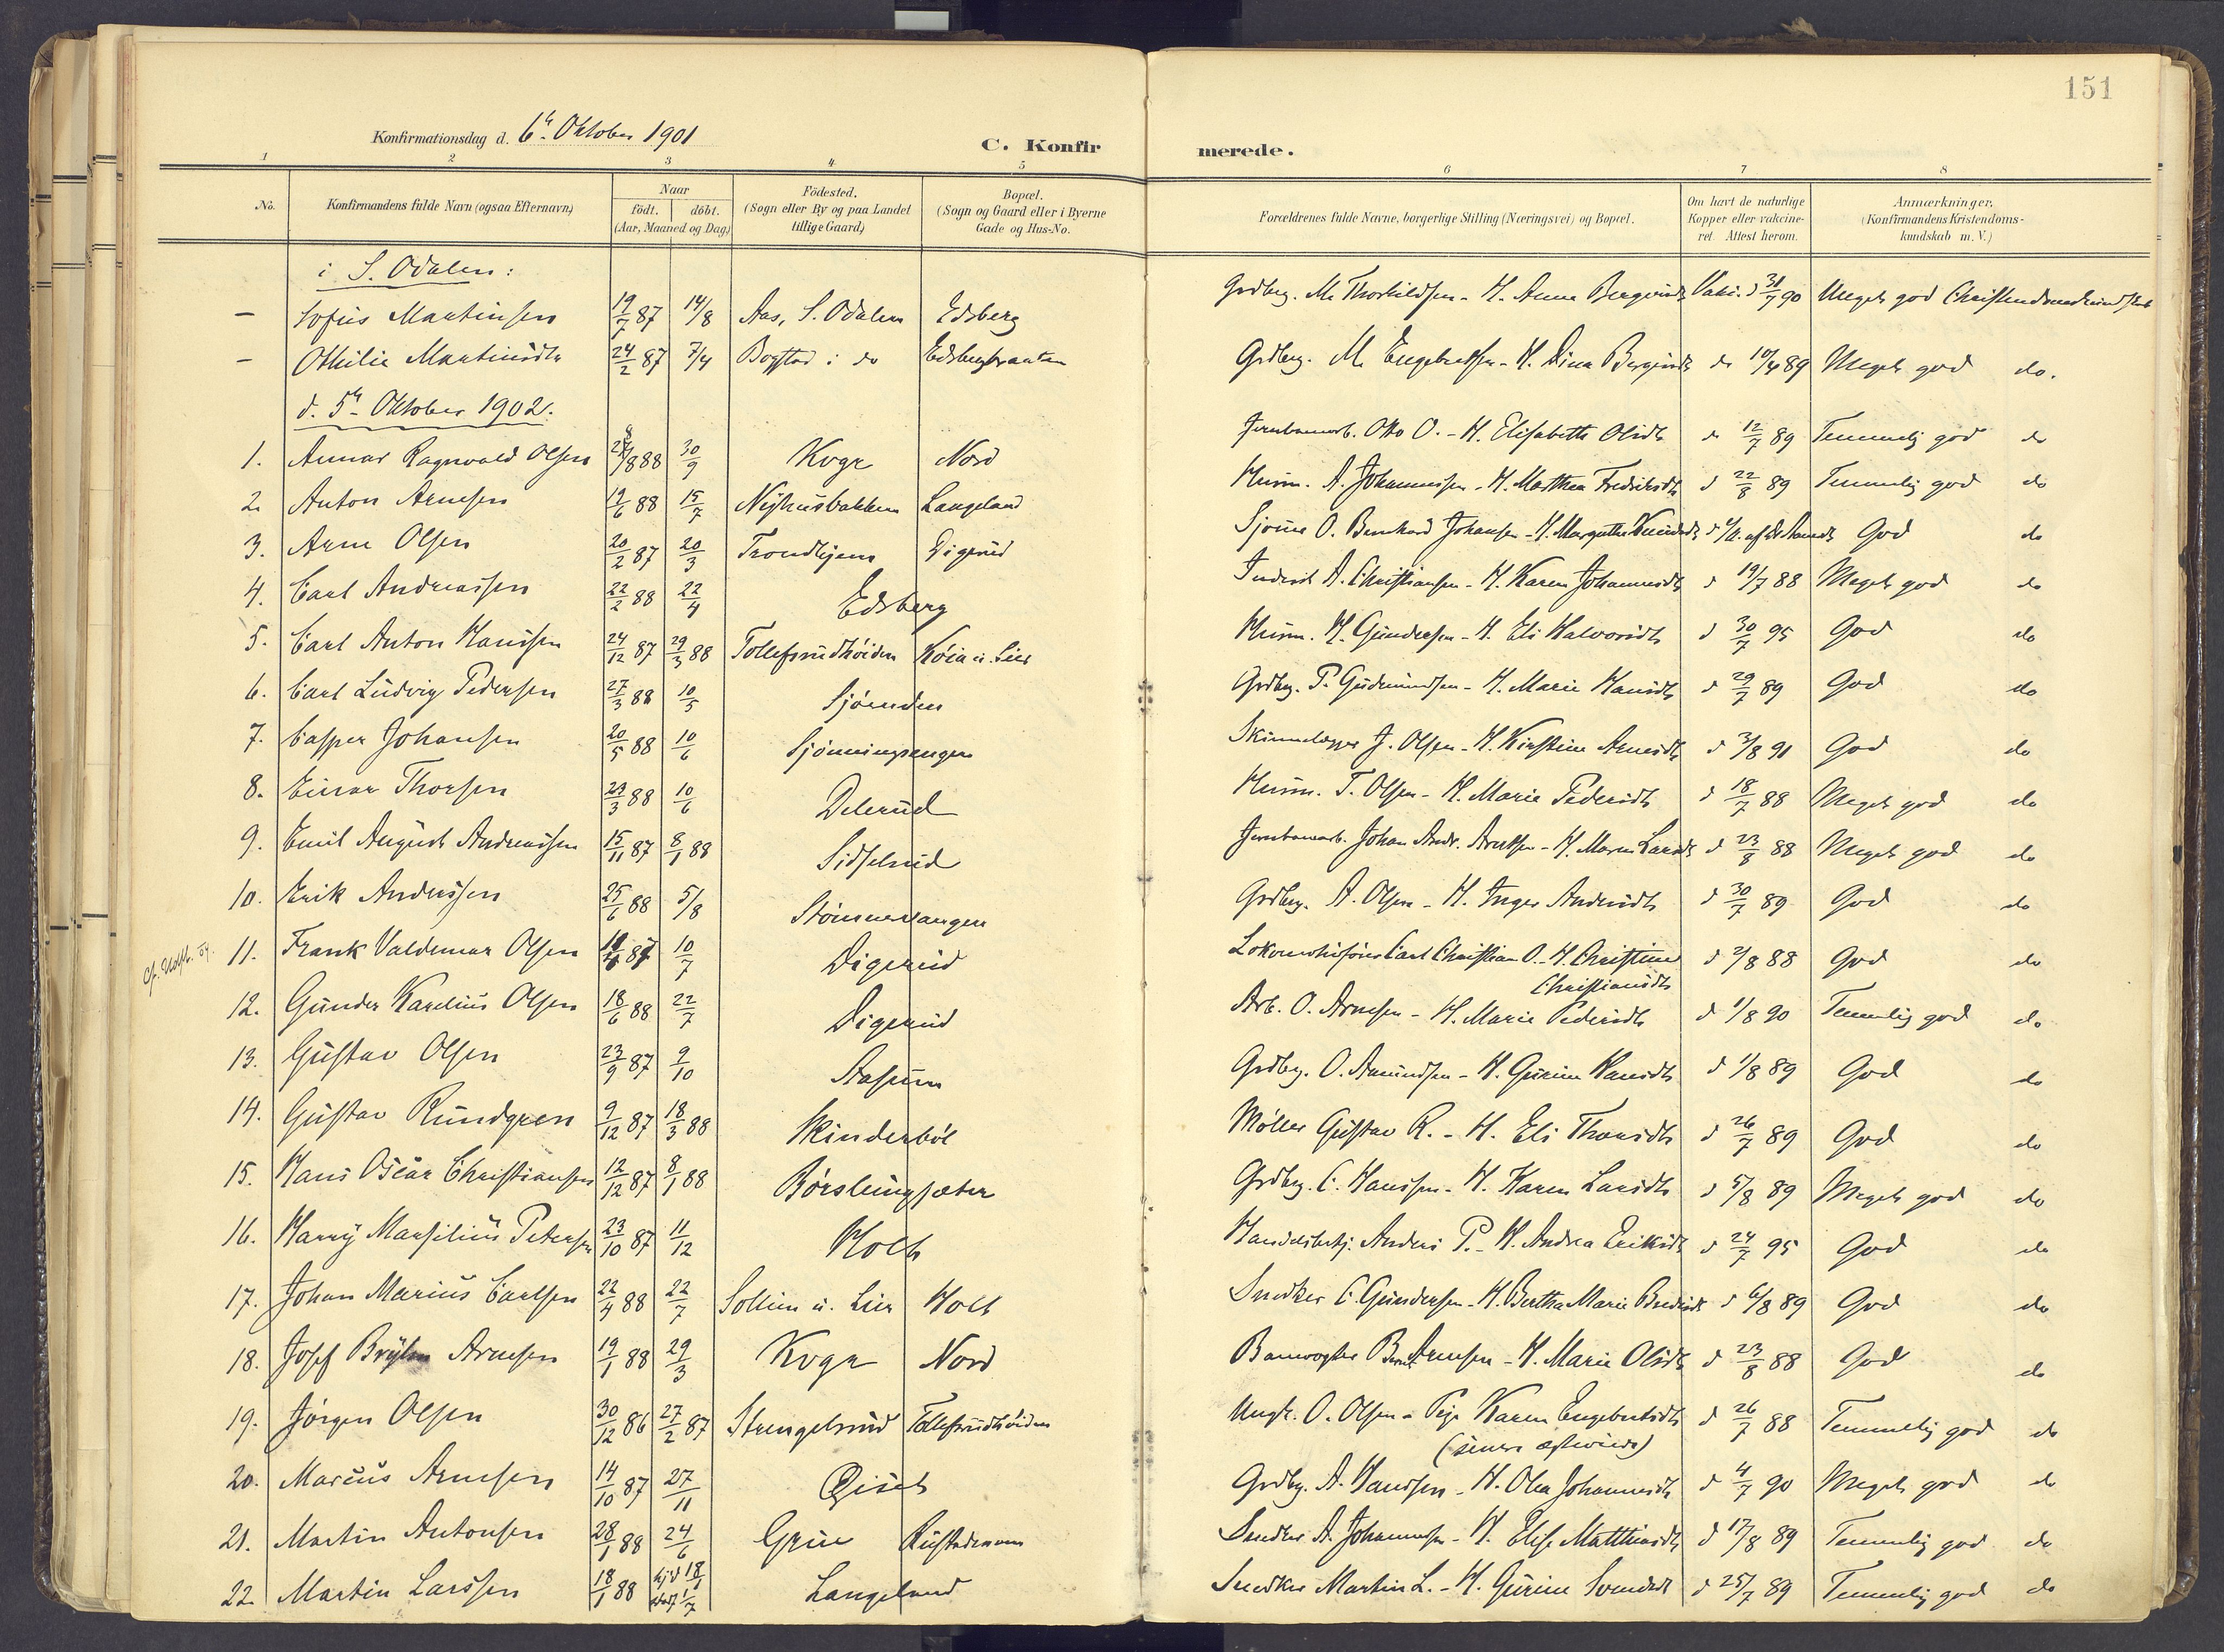 151
Konfirmationsdag d. 6te Oktober 1901
C. Konfirmerede.
1 2 3 4 5 6 7 8
No. Konfirmandens fulde Navn (ogsaa Efternavn) Naar födt. döbt. (Aar, Maaned og Dag) Födested. (Sogn eller By og paa Landet tillige Gaard) Bopæl. (Sogn og Gaard eller i Byerne Gade og Hus-No. Forældrenes fulde Navne, borgerlige Stilling (Næringsvei) og Bopæl. Om havt de naturlige Kopper eller vakcineret. Attest herom. Anmærkninger. (Konfirmandens Kristendomskundskab m. V.)
i S. Odalen:
– Sofus Martinsen 19/7 87 14/8 Aas, S. Odalen Edsberg Grdbrg. M. Thorkildsen - H. Anne Vakc. d 31/7 90 Meget god Christendomskundskab
– Othilie Martinsdtr 24/2 87 7/4 Bogstad i do Grdbrg. M. Engebretsen - H. Dina do 10/4 89 Meget god do.
d. 5te Oktober 1902.
1. Annar Ragnvald Olsen /8 88 30/9 Kroge Nord Jernbanearb. Otto O. - H. Elisabeth Olsdtr do 12/7 89 Temmelig god do
2. Anton Arnesen 19/6 88 15/7 Nyhusbakken Langeland Husm. A. Johannessen - H. Marthea Fredriksdtr d 22/8 89 Temmelig god do
3. Arne Olsen 20/2 87 20/3 Trondhjem Digerud O. Bernhard Johansen - H. Margrethe God do
4. Carl Andreassen 22/2 88 22/4 Edsberg Inderst A. Christiansen - H. Karen Johannesdtr d 19/7 88 Meget god do
5. Carl Anton Hanssen 24/12 87 29/3 88 Tollefsrudhöiden Köia u. Lier Husm. H. Gundersen - H. Eli Halvorsdtr d 30/7 95 God do
6. Carl Ludvig Pedersen 27/3 88 10/5 Sjöenden Grdbrg. P. Gudmundsen - H. Marie Hansdtr d 29/7 89 God do
7. Casper Johansen 20/5 88 10/6 Sjönningsengen J. Olsen - H. Kirstine Arnesdtr d 3/8 91 God do
8. Einar Thorsen 23/3 88 10/6 Delerud Husm. T. Olsen - H. Marie Pedersdtr d 18/7 88 Meget god do
9. Emil August Andreassen 15/11 87 8/1 88 Sidselrud Jernbanearb. Johan Andr. - H. Maren Larsdtr d 23/8 88 Meget god do
10. Erik Anderssen 25/6 88 5/8 Grdbrg. A. Olsen - H. Inger Andersdtr d 30/7 89 God do
11. Frank Valdemar Olsen 10/7 Digerud Lokomotivförer Carl Christian O. - H. Christine Christiansdtr d 2/8 88 God do
12. Gunder Karelius Olsen 18/6 88 22/7 Digerud Arb. O. Arnesen - H. Marie Pedersdtr d 1/8 90 Temmelig god do
13. Gustav Olsen 23/9 87 9/10 Aasum Grdbrg. O. Amundsen - H. Gurine Hansdtr d 1/8 89 God do
14. Gustav Rundgren 9/12 87 18/3 88 Skinderböl Möller Gustav R. - H. Eli Thorsdtr d 26/7 89 God do
15. Hans Oscar Christiansen 12/12 87 8/1 88 Börslungsæter Grdbrg. C. Hanssen - H. Karen Larsdtr d 5/8 89 Meget god do
16. Harry Marselius Petersen 23/10 87 11/12 Holt Handelsbetj. Anders P. - H. Andrea Eriksdtr d 24/7 95 God do
17. Johan Marius Carlsen 22/4 88 22/7 Sollien u. Lier Holt Snedker C. Gundersen - H. Bertha Marie d 6/8 89 God do
18. Josef Arnesen 19/1 88 29/3 Kroge Nord Banevogter Arnesen - H. Marie Olsdtr d 23/8 88 God do
19. Jörgen Olsen 30/12 86 27/2 87 Strengelsrud Tollefsrudhöiden Ungk. O. Olsen - Pige Karen Engebretsdtr (senere ægteviede) d 26/7 88 Temmelig god do
20. Marcus Arnesen 14/10 87 27/11 Qiset Grdbrg. A. Hanssen - H. Olea Johannesdtr d 4/7 90 Meget god do
21. Martin Antonsen 28/1 88 24/6 Grue Snedker A. Johannessen - H. Elise Matthiasdtr d 17/8 89 Temmelig god do
22. Martin Larssen 18/1 88 hjd 18/1 stadf 1/7 Langeland Snedker Martin L. - H. Gurine d 25/7 89 Temmelig god do